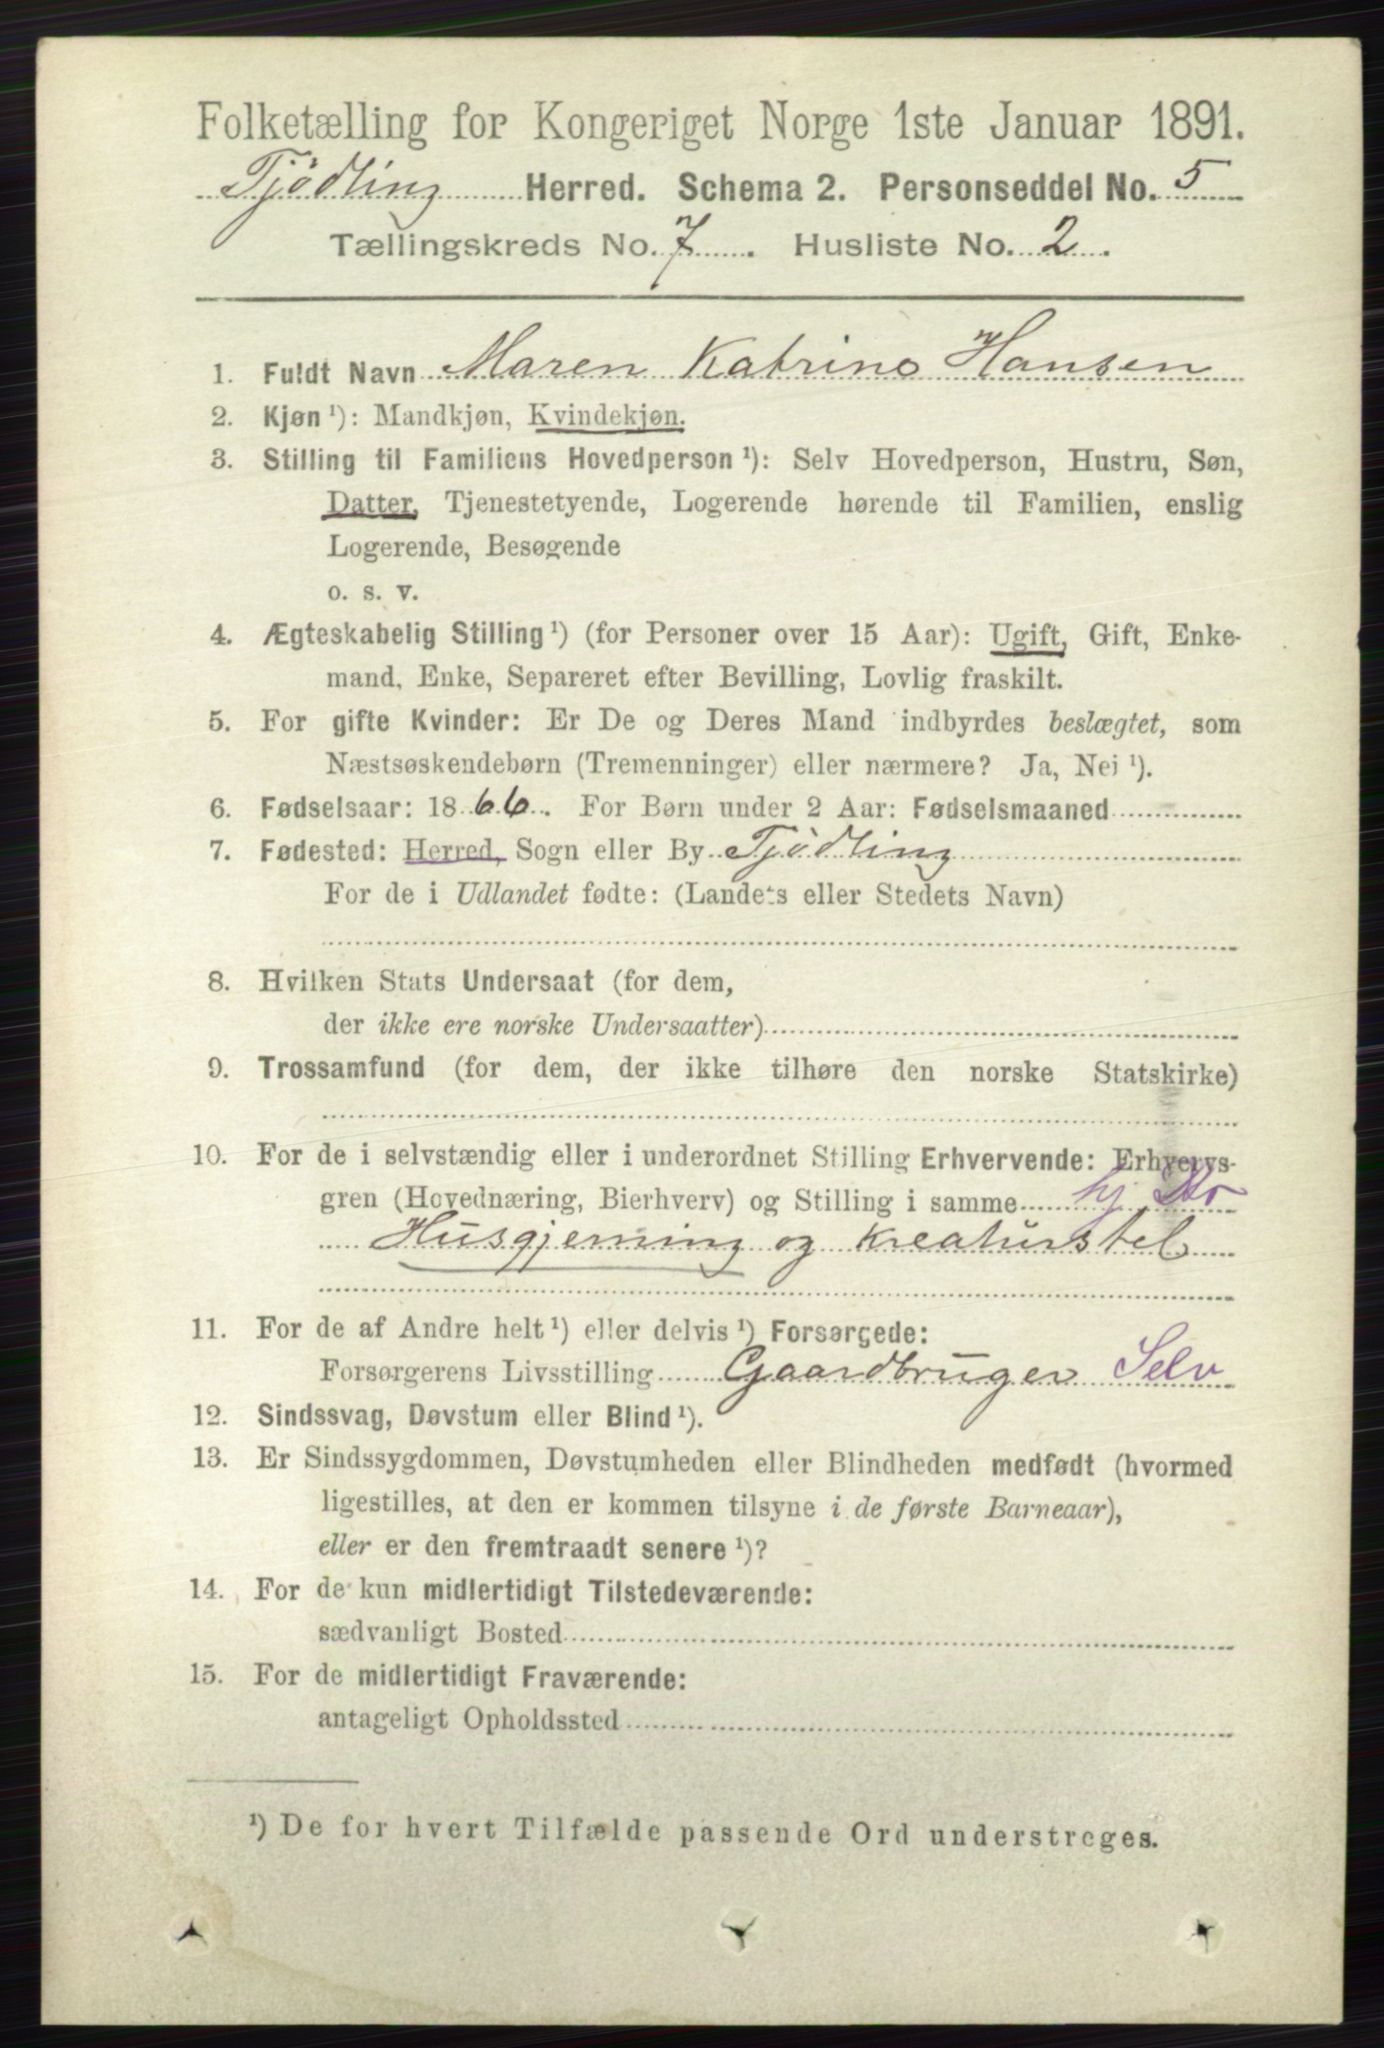 Folketælling for Kongeriget Norge 1ste Januar 1891.
Tjödling Herred. Schema 2. Personseddel No. 5
Tællingskreds No. 7. Husliste No. 2.
1. Fuldt Navn Maren Katrine Hansen
2. Kjøn ¹): Mandkjøn, Kvindekjøn.
3. Stilling til Familiens Hovedperson ¹): Selv Hovedperson, Hustru, Søn,
Datter, Tjenestetyende, Logerende hørende til Familien, enslig
Logerende, Besøgende
o. s. v.
4. Ægteskabelig Stilling ¹) (for Personer over 15 Aar): Ugift, Gift, Enke-
mand, Enke, Separeret efter Bevilling, Lovlig fraskilt.
5. For gifte Kvinder: Er De og Deres Mand indbyrdes beslægtet, som
Næstsøskendebørn (Tremenninger) eller nærmere? Ja, Nei ¹).
6. Fødselsaar: 1866. For Børn under 2 Aar: Fødselsmaaned
7. Fødested: Herred, Sogn eller By Tjödling
For de i Udlandet fødte: (Landets eller Stedets Navn)
8. Hvilken Stats Undersaat (for dem,
der ikke ere norske Undersaatter)
9. Trossamfund (for dem, der ikke tilhøre den norske Statskirke)
10. For de i selvstændig eller i underordnet Stilling Erhvervende: Erhvervs-
gren (Hovednæring, Bierhverv) og Stilling i samme hj
Husgjerning og kreaturstel
11. For de af Andre helt ¹) eller delvis ¹) Forsørgede:
Forsørgerens Livsstilling Gaardbruger Selv
12. Sindssvag, Døvstum eller Blind ¹).
13. Er Sindssygdommen, Døvstumheden eller Blindheden medfødt (hvormed
ligestilles, at den er kommen tilsyne i de første Barneaar),
eller er den fremtraadt senere ¹)?
14. For de kun midlertidigt Tilstedeværende:
sædvanligt Bosted
15. For de midlertidigt Fraværende:
antageligt Opholdssted
¹) De for hvert Tilfælde passende Ord understreges.